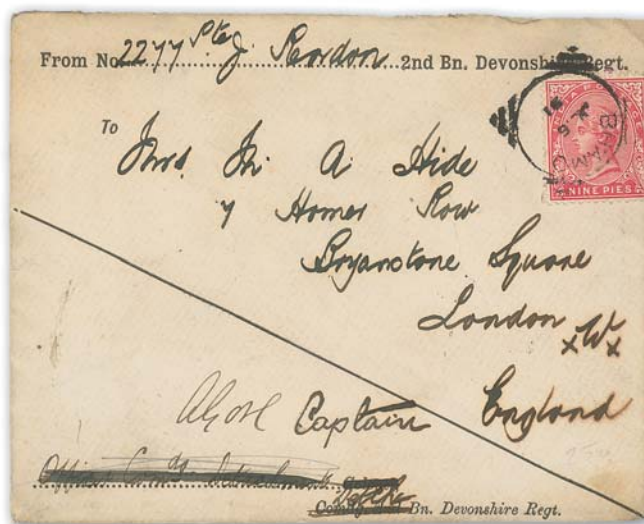 From No. 2277 Pte J. Reardon 2nd Bn. Devonshire Regt.
To
Mrs. M. A. Hide
7 Homer Row
Bryanstone Square
London
x W x
England
NINE PIES
Captain
Comdg 2nd Bn. Devonshire Regt.